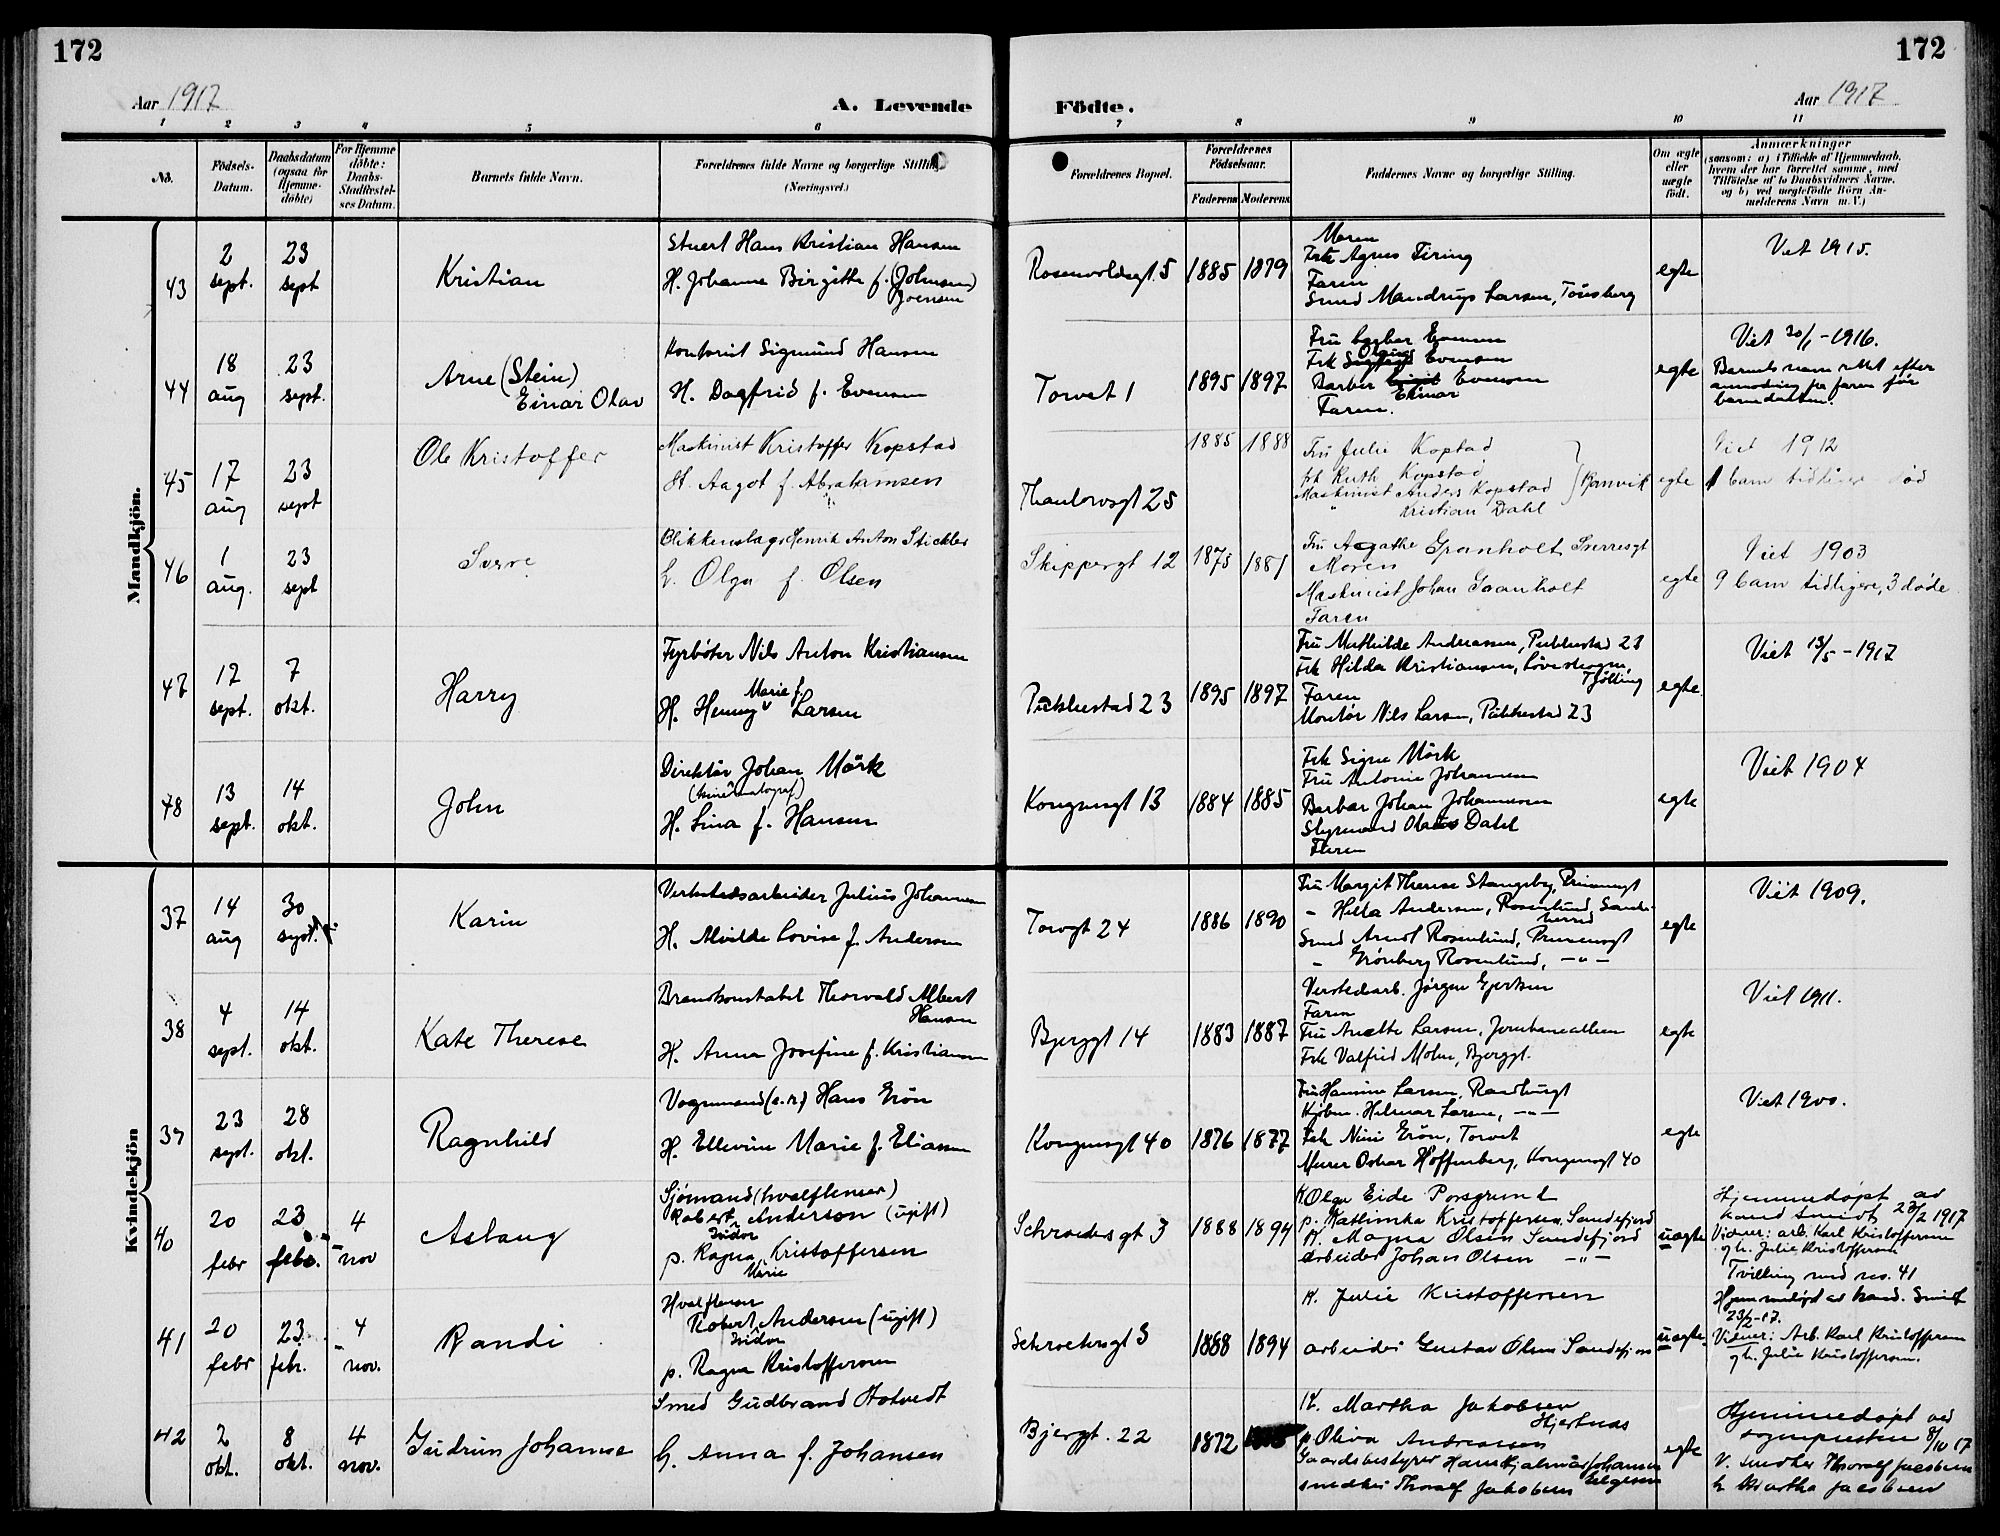 172
172
Aar 1917
A. Levende
Födte.
Aar 1917
1 2 3 4 5 6 7 8 9 10 11
No.
Födsels-Datum.
Daabsdatum (ogsaa for Hjemme-döbte)
For Hjemme döbte: Daabs-Stadfæstel-ses Datum.
Barnets fulde Navn.
Forældrenes fulde Navne og borgerlige Stilling (Næringsvei.)
Forældrenes Bopael.
Forældrenes Födselsaar.
Faderens Moderens
Faddernes Navne og borgerlige Stilling.
Om ægte eller uægte født.
Anmærkninger
(saasom: a) i Tilfælde af Hjemmedaab,
hvem der har forrettet samme, med
Tilføielse af to Daabsvidners Navne,
og b) ved uegtefödte Börn An-
melderens Navn m. V.)
Mandkjön.
43
2 sept.
23 sept
Kristian
Stuert Hans Kristian Hansen
H. Johanne Birgitte f. (Johnsen)
Joensen
Rosenvoldsgt. 5
1885 1879
Moren
Frk Agnes Firing
Faren
Smed Mandrup Larsen, Tönsberg
egte
Viet 1915.
44
18 aug
23 sept.
Arne (Stein)
Einar Olav
Kontorist Sigmund Hansen
H. Dagfrid f. Evensen
Torvet 1
1895 1897
Fru Evensen
Frk Evensen
Barber Evensen
Einar
Faren.
egte
Viet 30/1-1916.
Barnets navn rettet efter
anmodning fra faren før
barnedåben.
45
17 aug
23 sept
Ole Kristoffer
Maskinist Kristoffer Kopstad
H. Aagot f. Abrahamsen
Thaulowsgt 25
1885 1888
Fru Julie Kopstad
frk Ruth Kopstad
Maskinist Anders Kopstad
" Kristian Dahl
Ranvik
egte
Viet 1912
1 barn tidligere død
46
1 aug.
23 sept
Sverre
Blikkenslager Henrik Anton Stickler
h. Olga f. Olsen
Skippergt 12
1875 1881
Fru Agathe Granholt Snorresgt
Moren
Maskinist Johan Graanholt
Faren
egte
Viet 1903
9 barn tidligere, 3 døde
47
12 sept.
7 okt.
Harry
Fyrbøter Nils Anton Kristiansen
H. Henny Marie f. Larsen
Pukkestad 23
1895 1897
Fru Mathilde Andreassen, Pukkestad 23
Frk Hilda Kristiansen, Løveskogen,
Tjølling
Faren
Montør Nils Larsen, Pukkestad 23
egte
Viet 13/5-1917
48
13 sept.
14 okt.
John
Direktør Johan Mørk
(kinematograf)
H. Lina f. Hansen
Kongensgt 13
1884 1885
Frk Signe Mørk
Fru Antonie Johannesen
Barber Johan Johannesen
Styrmand Olaus Dahl
Faren
egte
Viet 1904
Kvindekjön
37
14 aug
30 sept.
Karin
Verkstedsarbeider Julius Johannesen
H. Alvilde Lovise f. Andersen
Torvgt 24
1886 1890
Fru Margit Therese Stangeby, Prinsensgt
" Hilda Andersen, Rosenlund Sande-
herred
Smed Arnolf Rosenlund, Prinsensgt
" Grönberg Rosenlund, — " —
egte
Viet 1909.
38
4 sept.
14 okt.
Kate Therese
Brandkonstabel Thorvald Albert
Hansen
H. Anna Josefine f. Kristiansen
Bjerggt 14
1883 1887
Verkstedarb. Jørgen Gjertsen
Faren
Fru Anette Larsen, Jernbanealleen
Frk Valfrid Molin, Bjerggt.
egte
Viet 1911.
39
23 sept.
28 okt.
Ragnhild
Vognmand (e.r.) Hans Grön
H. Ellevine Marie f. Eliassen
Kongensgt 40
1876 1877
Fru Hanine Larsen, Randbugt
Kjøbm. Hilmar Larsen, — " —
Frk Nini Grön, Torvet
Murer Oskar Hoffenberg, Kongensgt 40
egte
Viet 1900.
40
20 febr
23 febr.
4 nov
Aslaug
Sjømand (hvalfanger)
Robert Isidor Anderson (ugift)
p. Ragna Marie Kristoffersen
Schroedersgt 3
1888 1894
K. Olga Eide Porsgrund
p. Kathinka Kristoffersen Sandefjord
K. Magna Olsen Sandefjord
Arbeider Johan Olsen — " —
uægte
Hjemmedøpt av
kand Smidt, 23/2 1917
Vidner: arb. Karl Kristoffersen
og h. Julie Kristoffersen
Tvilling med no. 41
41
20 febr
23 febr.
4 nov.
Randi
Hvalfanger
Robert Isidor Andersen (ugift)
p. Ragna Kristoffersen
Schroetersgt 3
1888 1894
K. Julie Kristoffersen
arbeider Gustav Olsen Sandefjord
uægte
Hjemmedøpt av kand. Smidt
23/2-17.
Vidner: Arb. Karl Kristoffersen
og h. Julie Kristoffersen.
42
2 okt.
8 okt.
4 nov.
Gudrun Johanne
Smed Gudbrand Hotvedt
h. Anna f. Johansen
Bjergt. 22
1872
K. Martha Jakobsen
Hjertnæs
p. Oliva Andreassen
Gaardsbestyrer Hans Hjalmar Johansen
Helgesen
snedker Thoralf Jakobsen
egte
Hjemmedøpt ved
sognepresten 8/10 17
V. snedker Thoralf Jacobsen
h. Martha Jacobsen